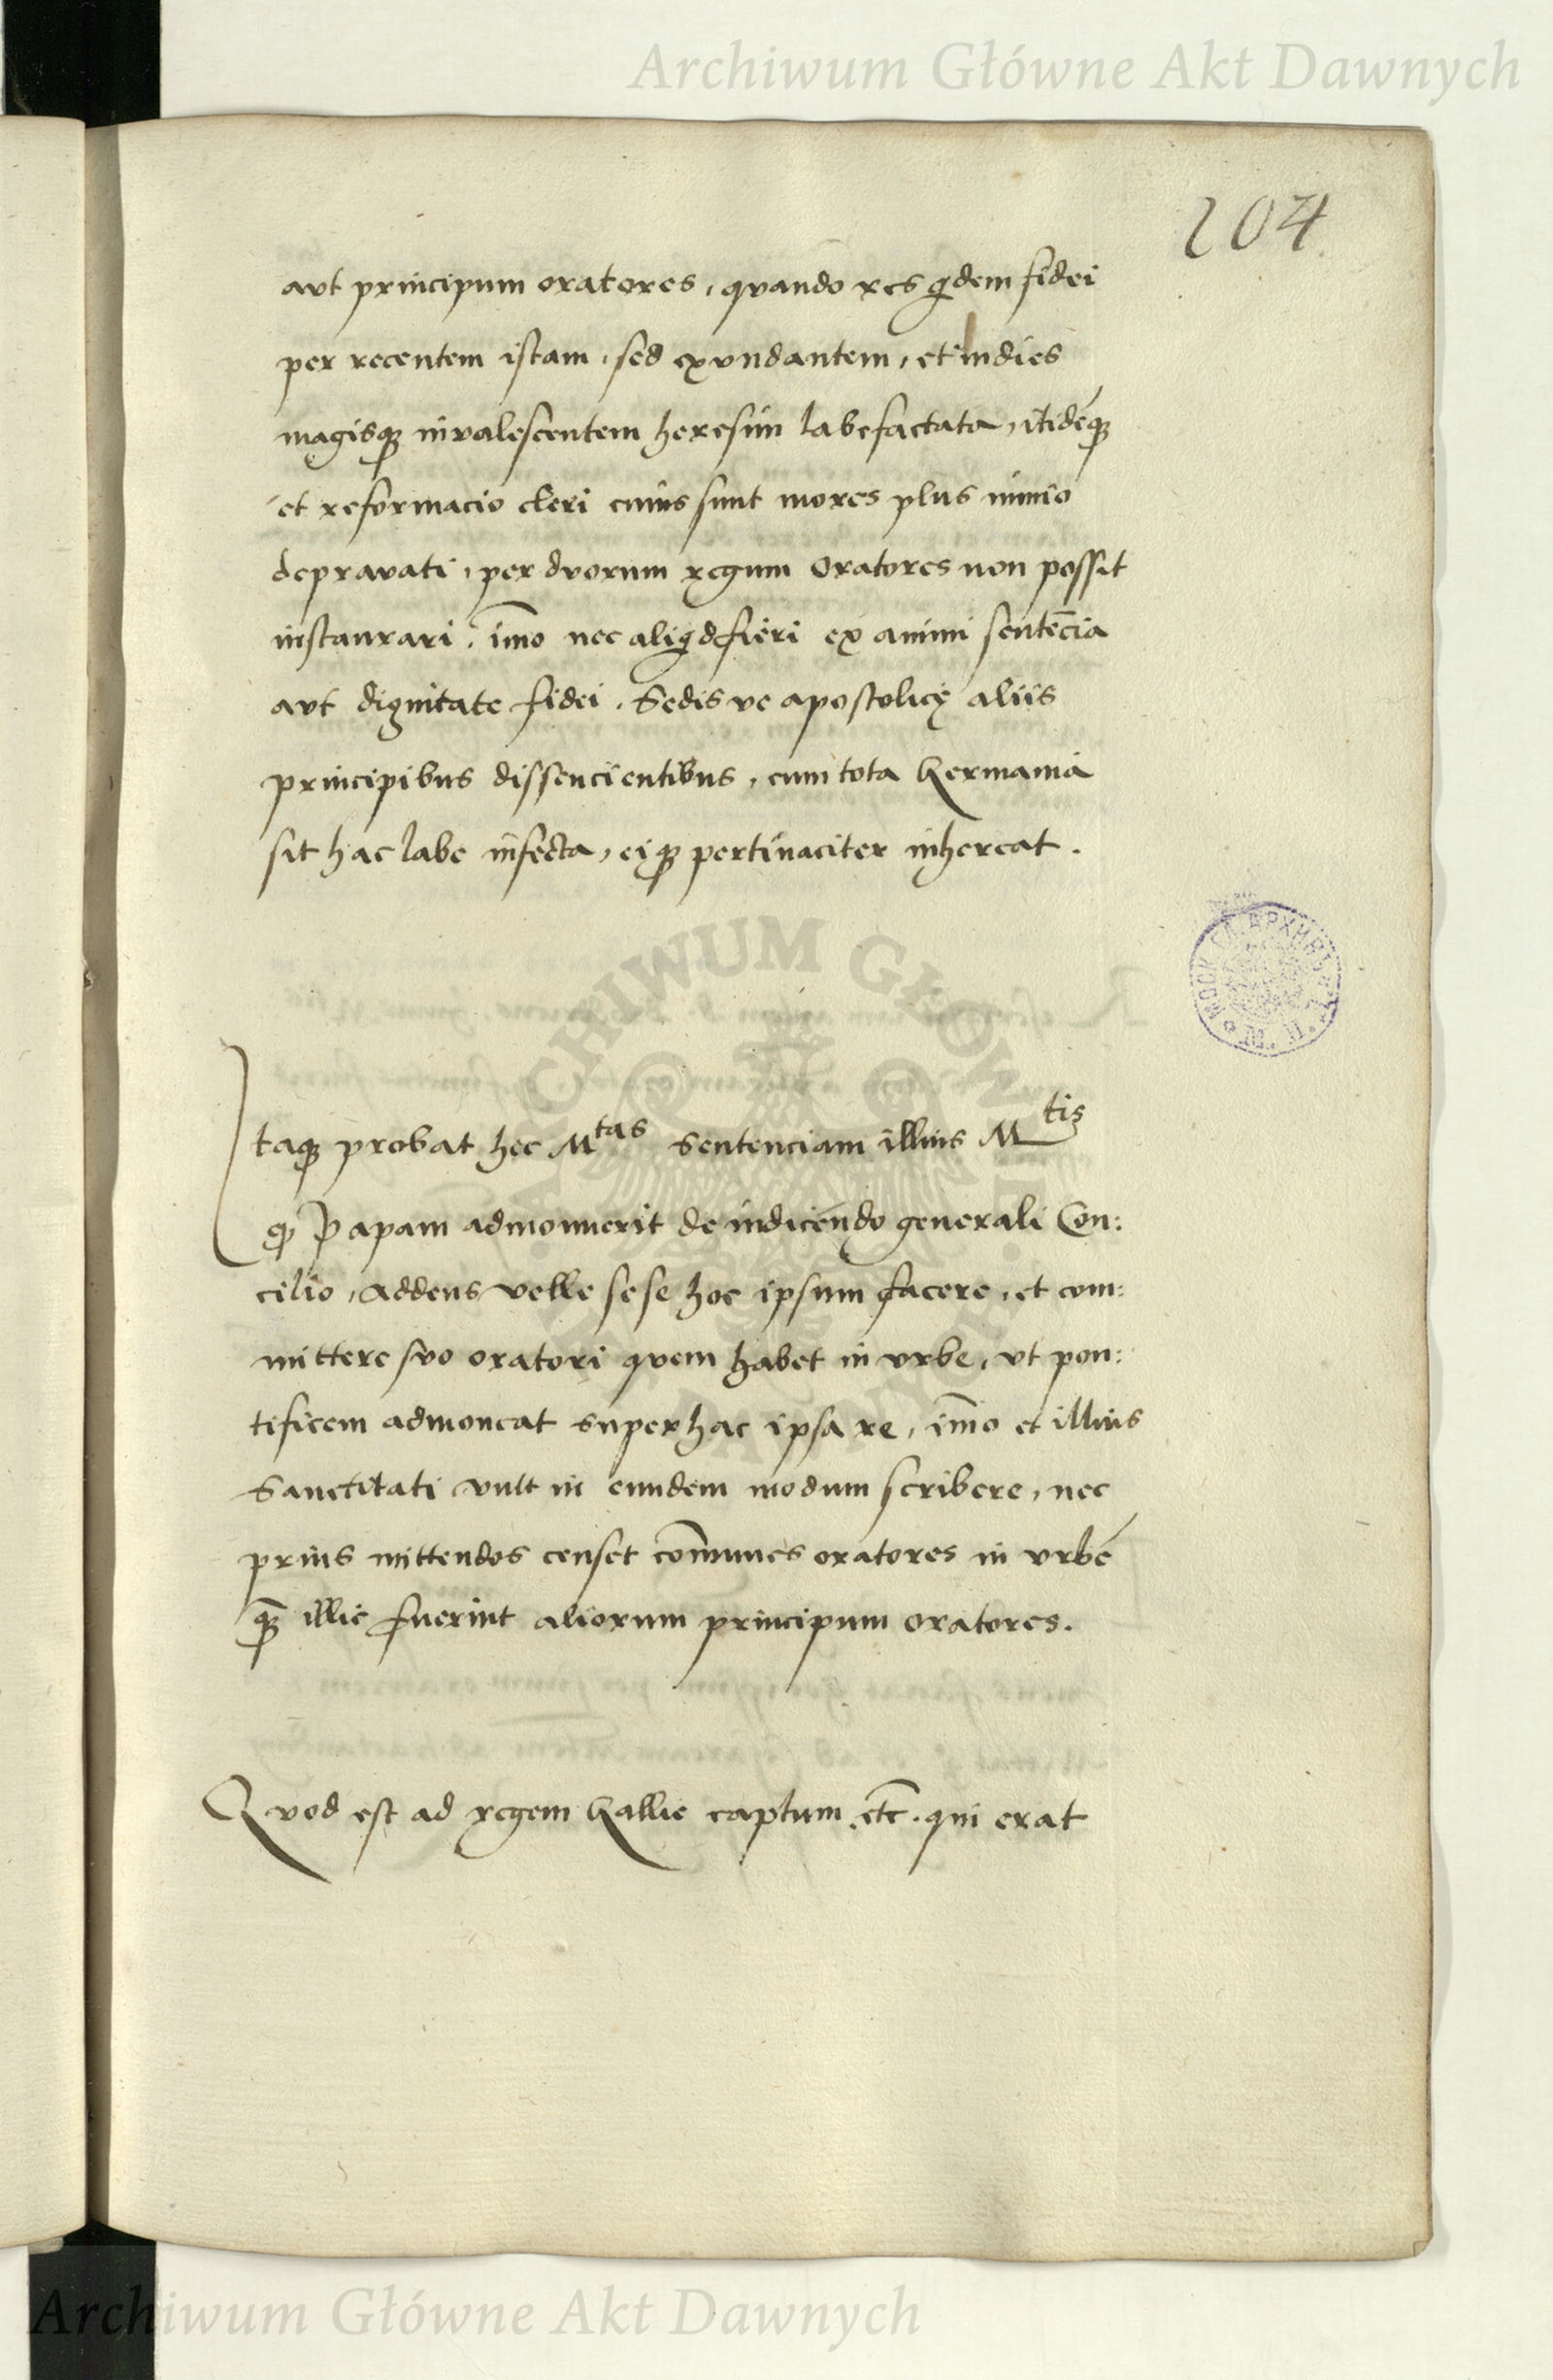 Archiwum Główne Akt Dawnych
204
aut principum oratores, quando res qdem fidei
per recentem istam, sed exundantem, et indies
magisq invalescentem heresim labefactata, itideq
et reformacio cleri cuius sunt mores plus nimio
depravati, per duorum regum oratores non possit
instaurari, imo nec aliqd fieri ex animi sentencia
aut dignitate fidei, Sedis ve apostolicę aliis
principibus dissencientibus, cum tota Germania
sit hac labe infecta, eiq pertinaciter inhereat.
Itaq probat hec Mtas Sentenciam illius Mtis
q Papam admonuerit de indicendo generali Con:
cilio, addens velle sese hoc ipsum facere, et com:
mittere suo oratori quem habet in urbe, ut pon:
tificem admoneat super hac ipsa re, imo et illius
Sanctitati vult in eundem modum scribere, nec
prius mittendos censet comunes oratores in urbe
q illic fuerint aliorum principum oratores.
Quod est ad regem Gallie captum etc. qui erat
Archiwum Główne Akt Dawnych